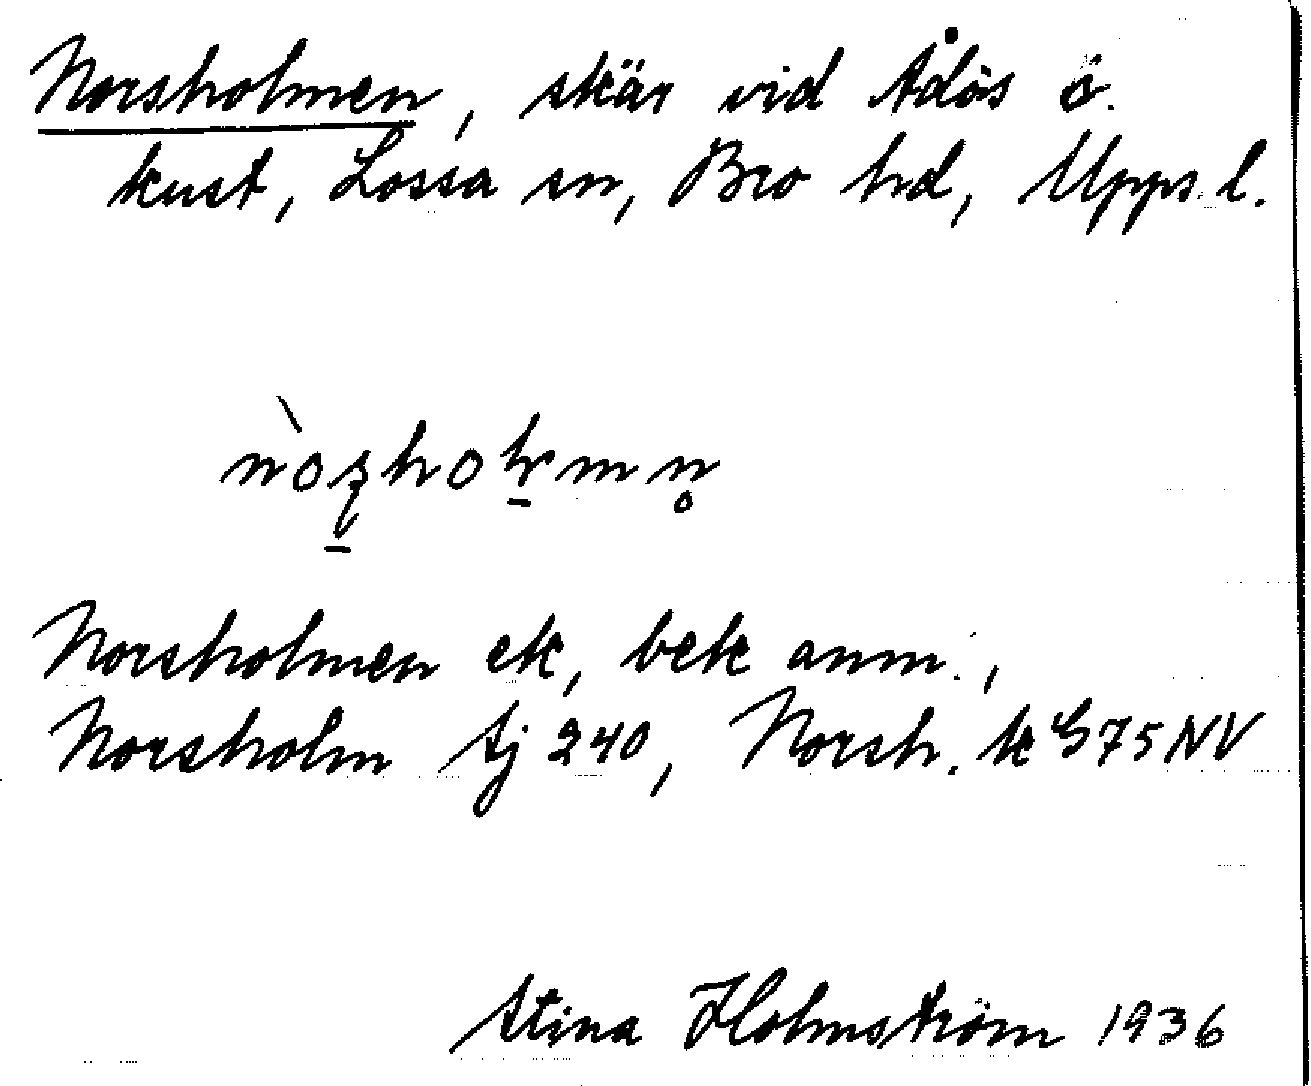 Norsholmen, skär vid Ådös ö.
kust, Lossa sn, Bro hd, Upps. l.
Norsholmen ek, bek anm.,
Norsholm Sj 240, Norsh. k G 75 NV
Stina Holmström 1936